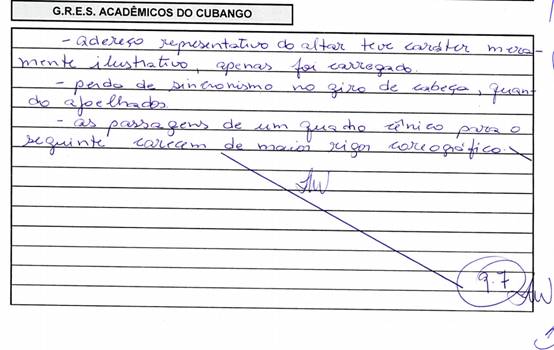 G.R.E.S. ACADÊMICOS DO CUBANGO
- Adereço representativo do altar teve caráter mera-
mente ilustrativo, apenas foi carregado.
- perda de sincronismo no giro de cabeça, quan-
do ajoelhados
- as passagens de um quadro cênico para o
seguinte carecem de maior rigor coreográfico.
AW
9.7 AW